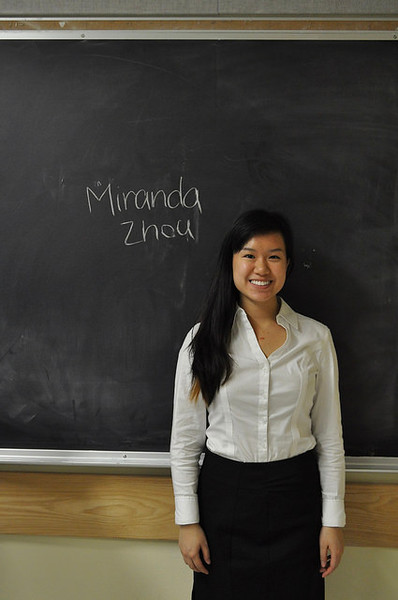 Miranda
Zhou